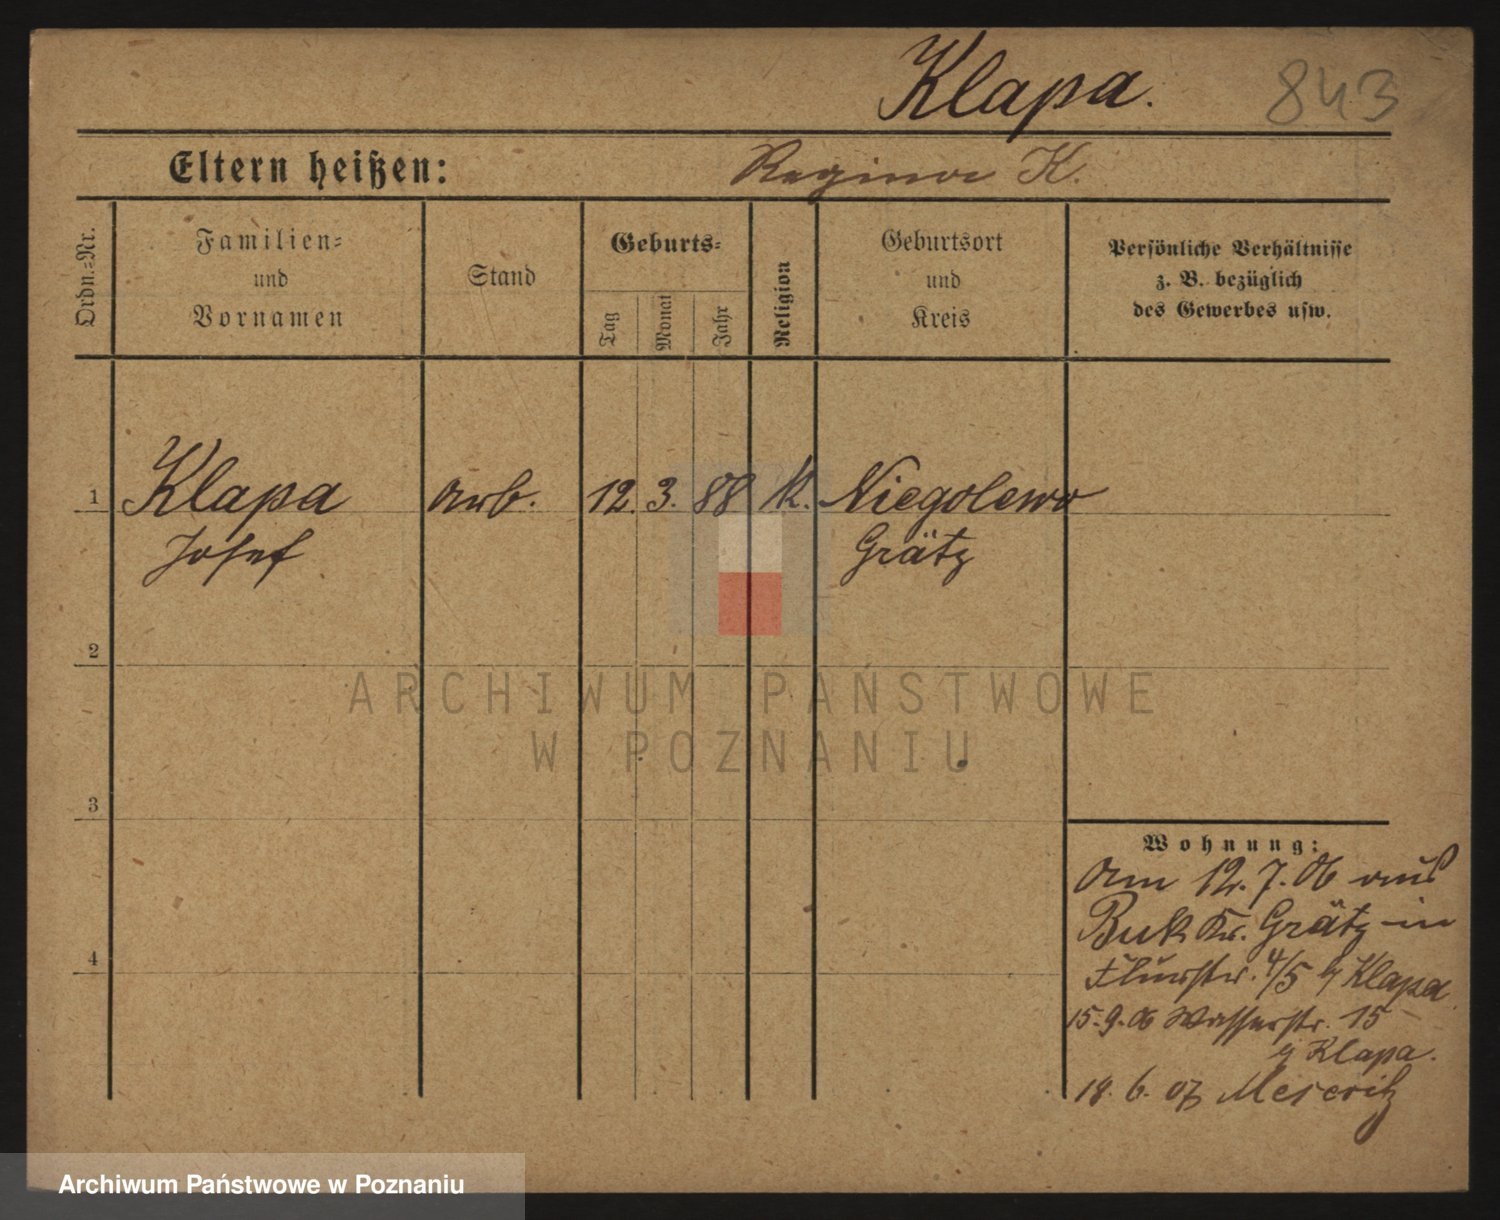 Klapa. 843
Eltern heißen: Regina K.
Ordn.-Nr.
Familien-
und
Vornamen
Stand
Geburts-
Tag
Monat
Jahr
Religion
Geburtsort
und
Kreis
Persönliche Verhältnisse
z. B. bezüglich
des Gewerbes usw.
1 Klapa arb. 12. 3. 88 K. Niegolewo
Josef Grätz
2
3
4
Wohnung:
Am 12.7.06 aus
Buk Kr. Grätz in
Flurstr. 4/5 b/ Klapa
15.9.06 Wasserstr. 15
b/ Klapa.
18. 6. 07 Meseritz
ARCHIWUM PAŃSTWOWE
W POZNANIU
Archiwum Państwowe w Poznaniu